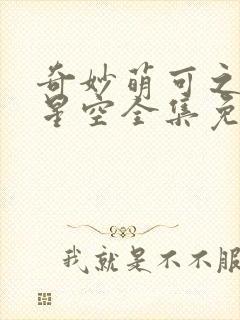 奇妙萌可之
星空全集免
我就是不不服